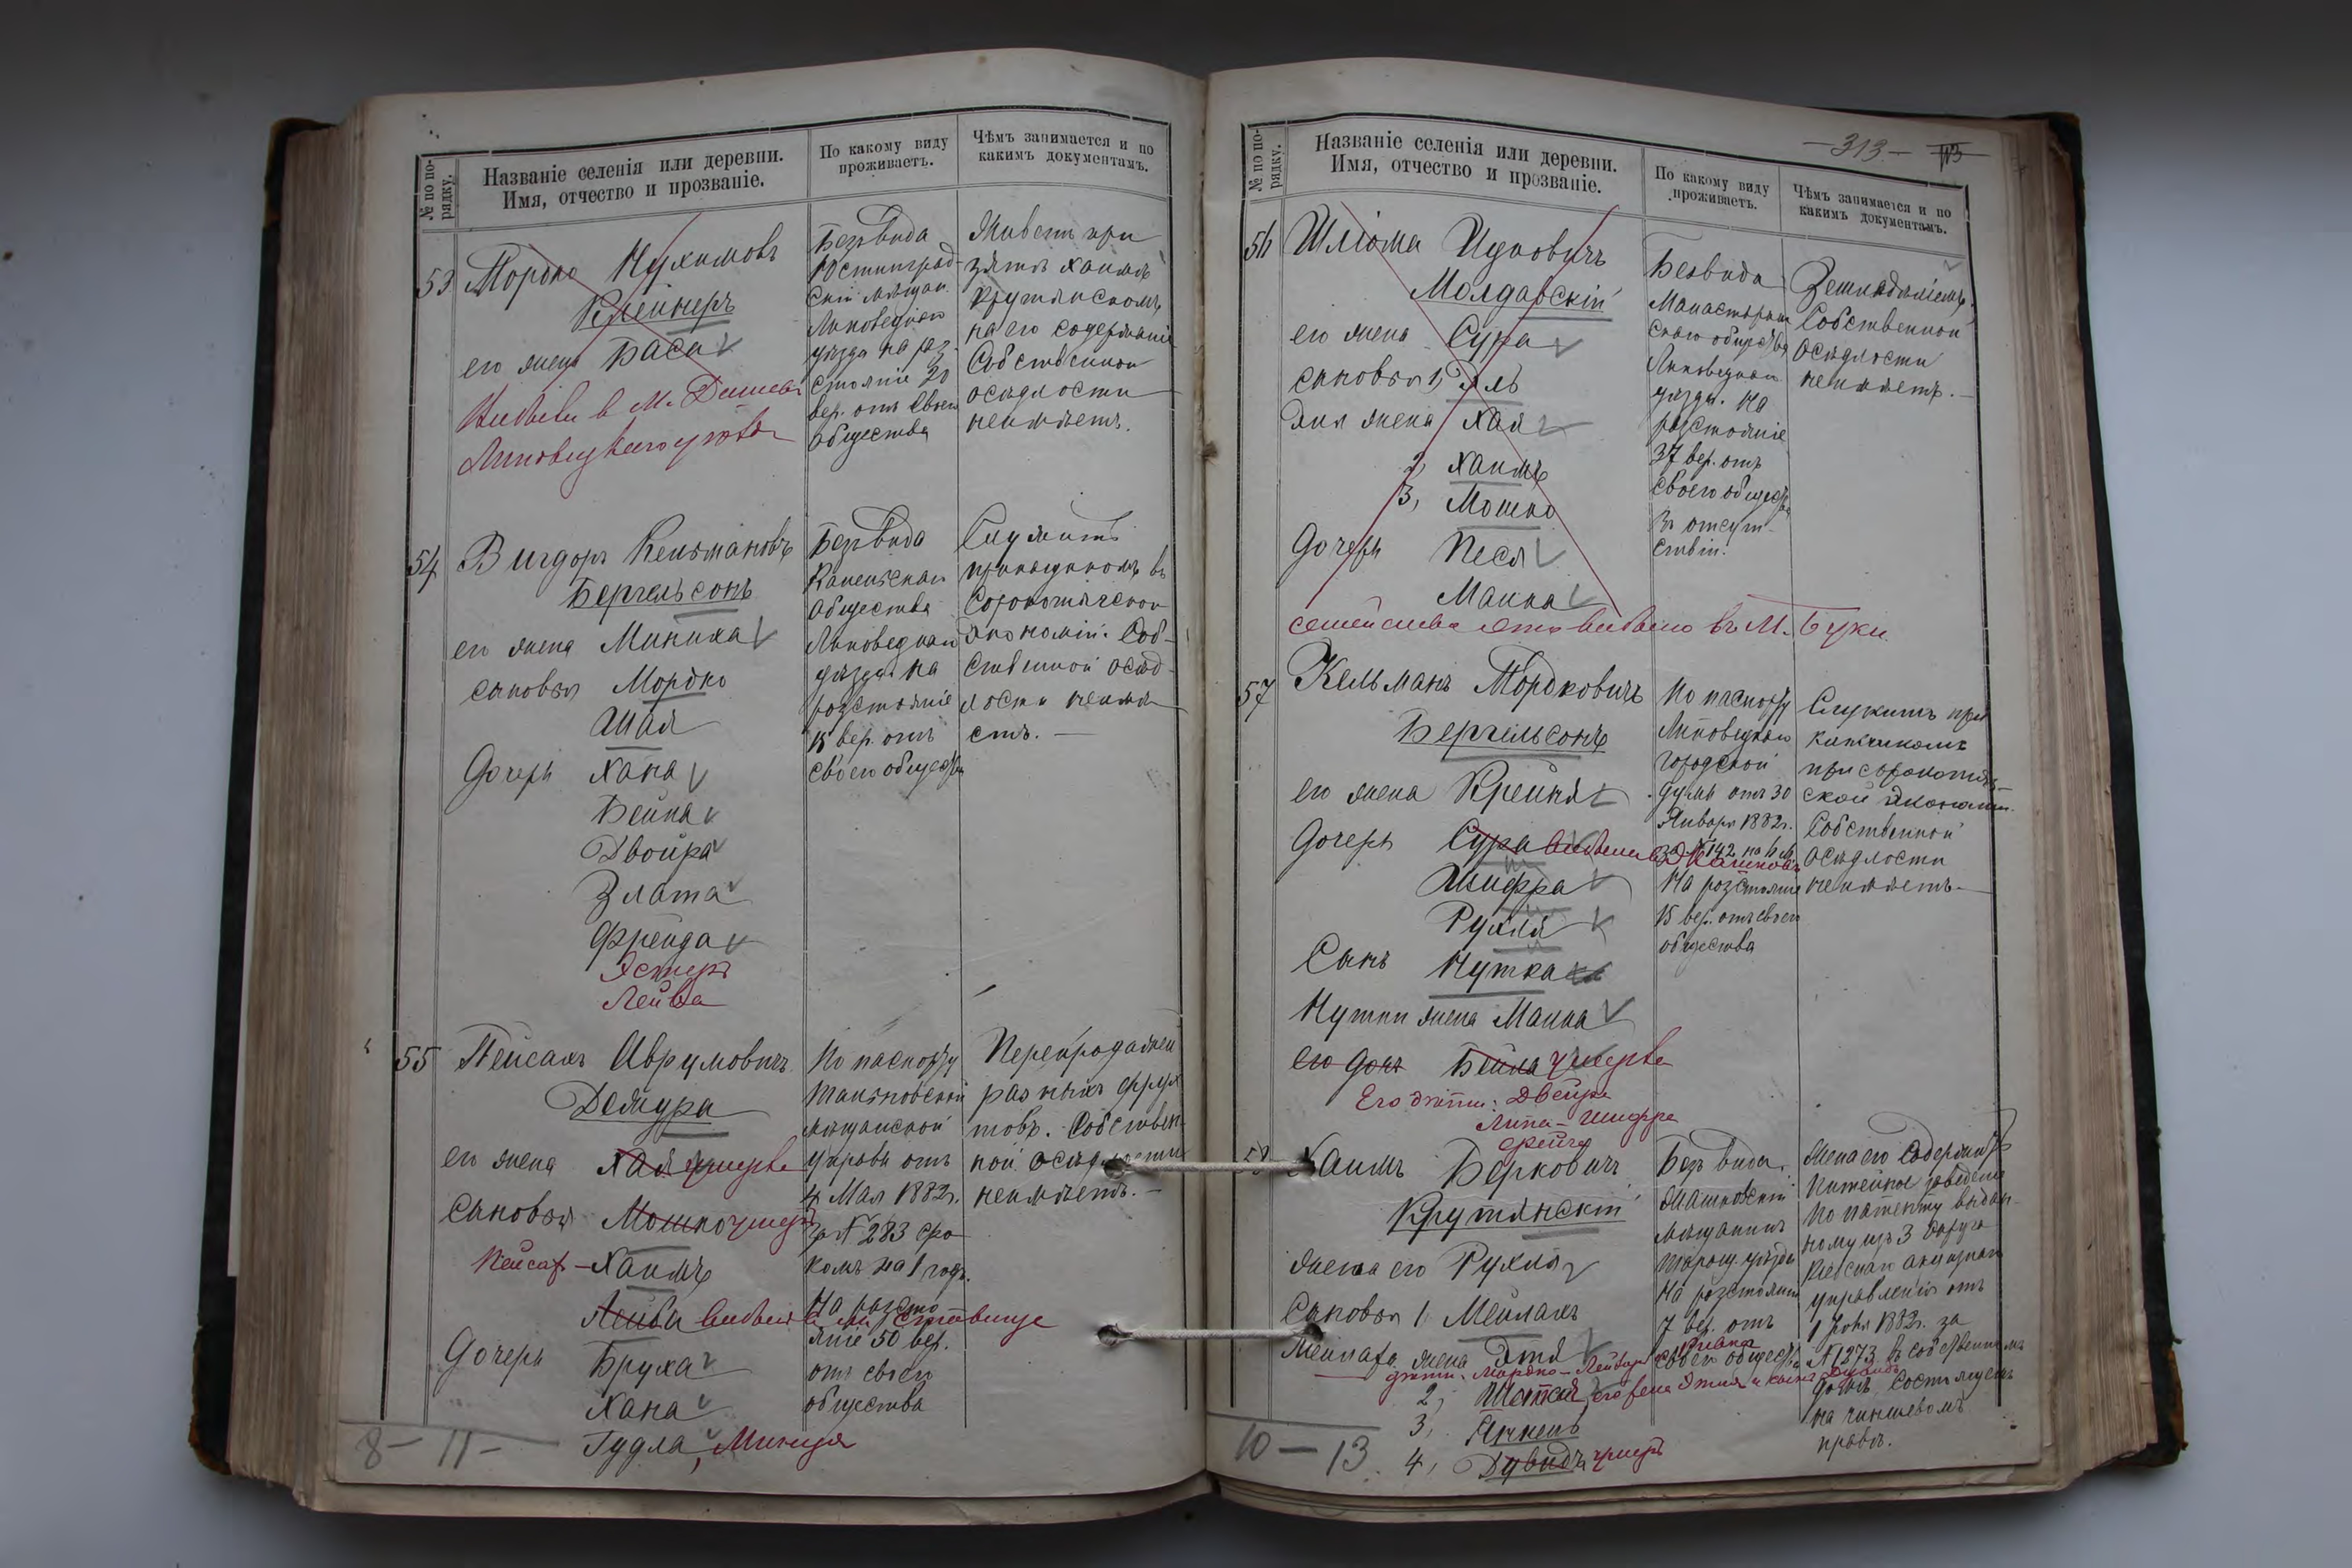 № по по-
рядку.
Названіе селенія или деревни.
Имя, отчество и прозваніе.
По какому виду
проживаетъ.
Чѣмъ занимается и по
какимъ документамъ.
53 Мордко Нухимовъ
Клейнеръ
его жена Бася
Выбыли в м. Дашев
Липовецкаго уезда
Безъ вида
Липовецкаго
уѣзда на раз-
стояніе 20
вер. отъ своего
общества
Живетъ при
зятѣ Хаимѣ
Крутянскомъ
на его содержаніи
Собственной
осѣдлости
неимѣетъ.
54 Вигдоръ Кельмановъ
Бергельсонъ
его жена Миниха
сыновья Мордко
Шая
Дочери Хана
Бейла
Двойра
Злата
Фрейда
Эстеръ
Лейва
Безъ вида
общества
Липовецкаго
уѣзда на
разстояніе
15 вер. отъ
своего общества
Служитъ
прикащикомъ въ
Сорокотяжской
экономіи. Соб-
ственной осѣд-
лости неимѣ-
етъ. —
55 Пейсахъ Аврумовичъ
Дежура
его жена Хая умерла
Сыновья Мошко умеръ
Пейсах – Хаимъ
Лейба выбыл в м. Ставище
Дочери Бруха
Хана
Гудля, Минця
По паспорту
мѣщанской
управы отъ
4 Мая 1882 г.
за № 283 сро-
комъ на 1 годъ.
На разсто-
яніе 50 вер.
отъ своего
общества
Перепродажей
разныхъ фрук
товъ. Собствен-
ной осѣдлости
неимѣетъ. —
8 – 11 –
– 313 –
№ по по-
рядку.
Названіе селенія или деревни.
Имя, отчество и прозваніе.
По какому виду
проживаетъ.
Чѣмъ занимается и по
какимъ документамъ.
56 Шліома Ицковичъ
Молдавскій
его жена Сура
сыновья 1, Эль
Эля жена Хая
2, Хаимъ
3, Мошко
Дочери Песя
Маина
семейство это выбыло въ М. Буки
Безвида
скаго общества
Липовецкаго
уѣзда. На
разстояніе
37 вер. отъ
своего общества
Въ отсут-
ствіи.
Земледѣліемъ.
Собственной
осѣдлости
неимѣетъ. —
57 Кельманъ Мордковичъ
Бергельсонъ
его жена Крейня
Дочери Сура
Шифра
Рухля
Сынъ Нутка
Нутки жена Маина
его дочь Бейла умерла
Его дѣти: Двойра
Липа – Шифра
Фрейда
По паспорту
Липовецкой
городской
думы отъ 30
Января 1882 г.
за № 142
На разстояніе
15 вер. отъ своего
общества
Служитъ при
кащикомъ
при Сорокотяж-
ской экономіи.
Собственной
осѣдлости
неимѣетъ —
58 Хаимъ Берковичъ
Крутянскій
жена его Рухля
Сыновья 1, Мейлахъ
Мейлаха жена Этя
дѣти: Мордко – Лейвар
2, его жена Этля и сынъ
3, Янкель
4, Дувидъ умеръ
Безъ вида.
мѣщанинъ
Таращ. уѣзда
На разстояніи
7 вер. отъ
своего общества
Жена его содержитъ
Питейное заведеніе
по патенту выдан-
ному изъ 3 округа
Кіевскаго акцизнаго
управленія отъ
1 Января 1882 г. за
№ 1273 въ собственномъ
домѣ состоящемъ
на чиншевомъ
правѣ.
10 – 13